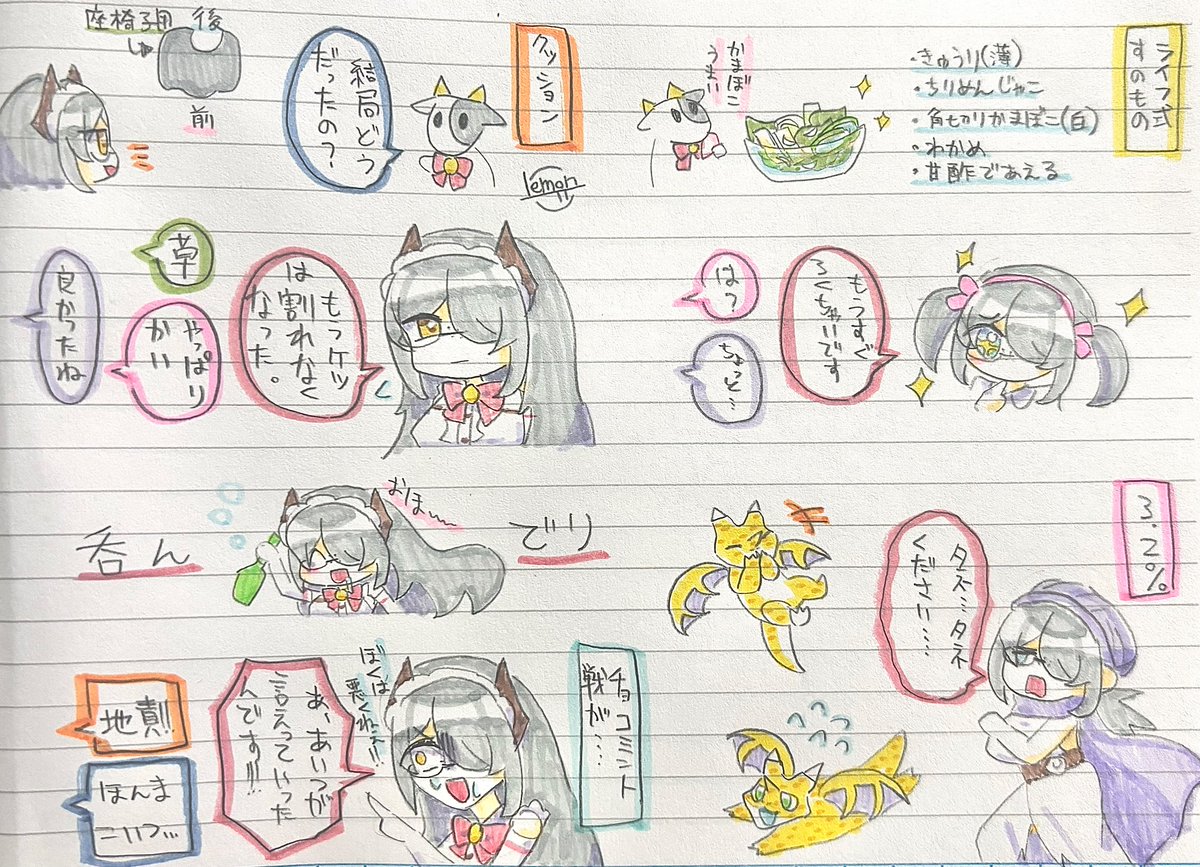 ライフ式
すのもの
・きゅうり(薄)
・ちりめんじゃこ
・角切りかまぼこ(白)
・わかめ
・甘酢であえる
かまぼこ
うまい
もうすぐ
ろくちゃいです
はっ
ちょっと…
3.2%
タス…タネ
ください…
クッション
lemon
結局どう
だったの?
座椅子用
後
前
もっケツ
は割れなく
なった。
草
やっぱり
かい
良かったね
おほ
でり
呑ん
チョコミント
戦が…
ぼくは
悪くねェ!!
あ、あいつが
言えっていった
んです!!!
地責!!
ほんま
こいつ…